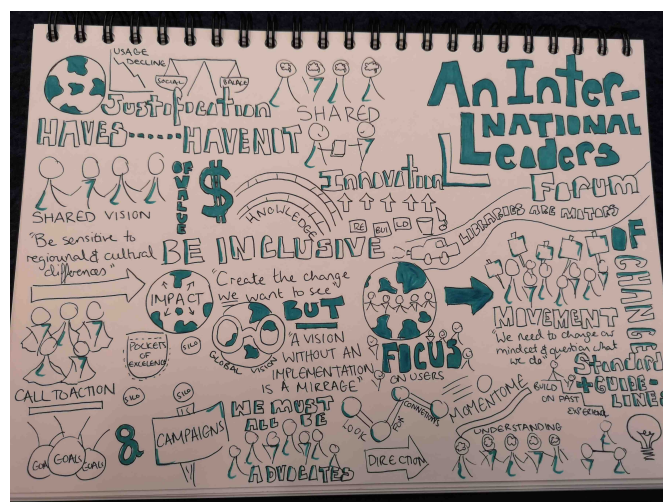 USAGE
DECLINE
SOCIAL
BALACE
Justification
SHARED
HAVES......HAVENOT
An Inter-
NATIONAL
Leaders
Forum
OF VALUE
$
KNOWLEDGE
Innovation
RE BUI LD
LIBRARIES ARE MOTORS
OF CHANGE
SHARED VISION
"Be sensitive to
regiounal & cultural
differences"
BE INCLUSIVE
IMPACT
"Create the change
we want to see"
BUT
GLOBAL VISION
"A VISION
WITHOUT AN
IMPLEMENTATION
IS A MIRRAGE"
FOCUS
ON USERS
MOVEMENT
"We need to change our
mindset & question what
we do"
Standard
+ GUIDE-
LINES
POCKETS
OF
EXCELENCE
SILO
SILO
SILO
CALL TO ACTION
GOALS
&
CAMPAIGNS
WE MUST
ALL BE
ADVOCATES
LOOK FOR CONNECTIONS
DIRECTION
MOMENTOME
BUILD
ON PAST
UNDERSTANDING